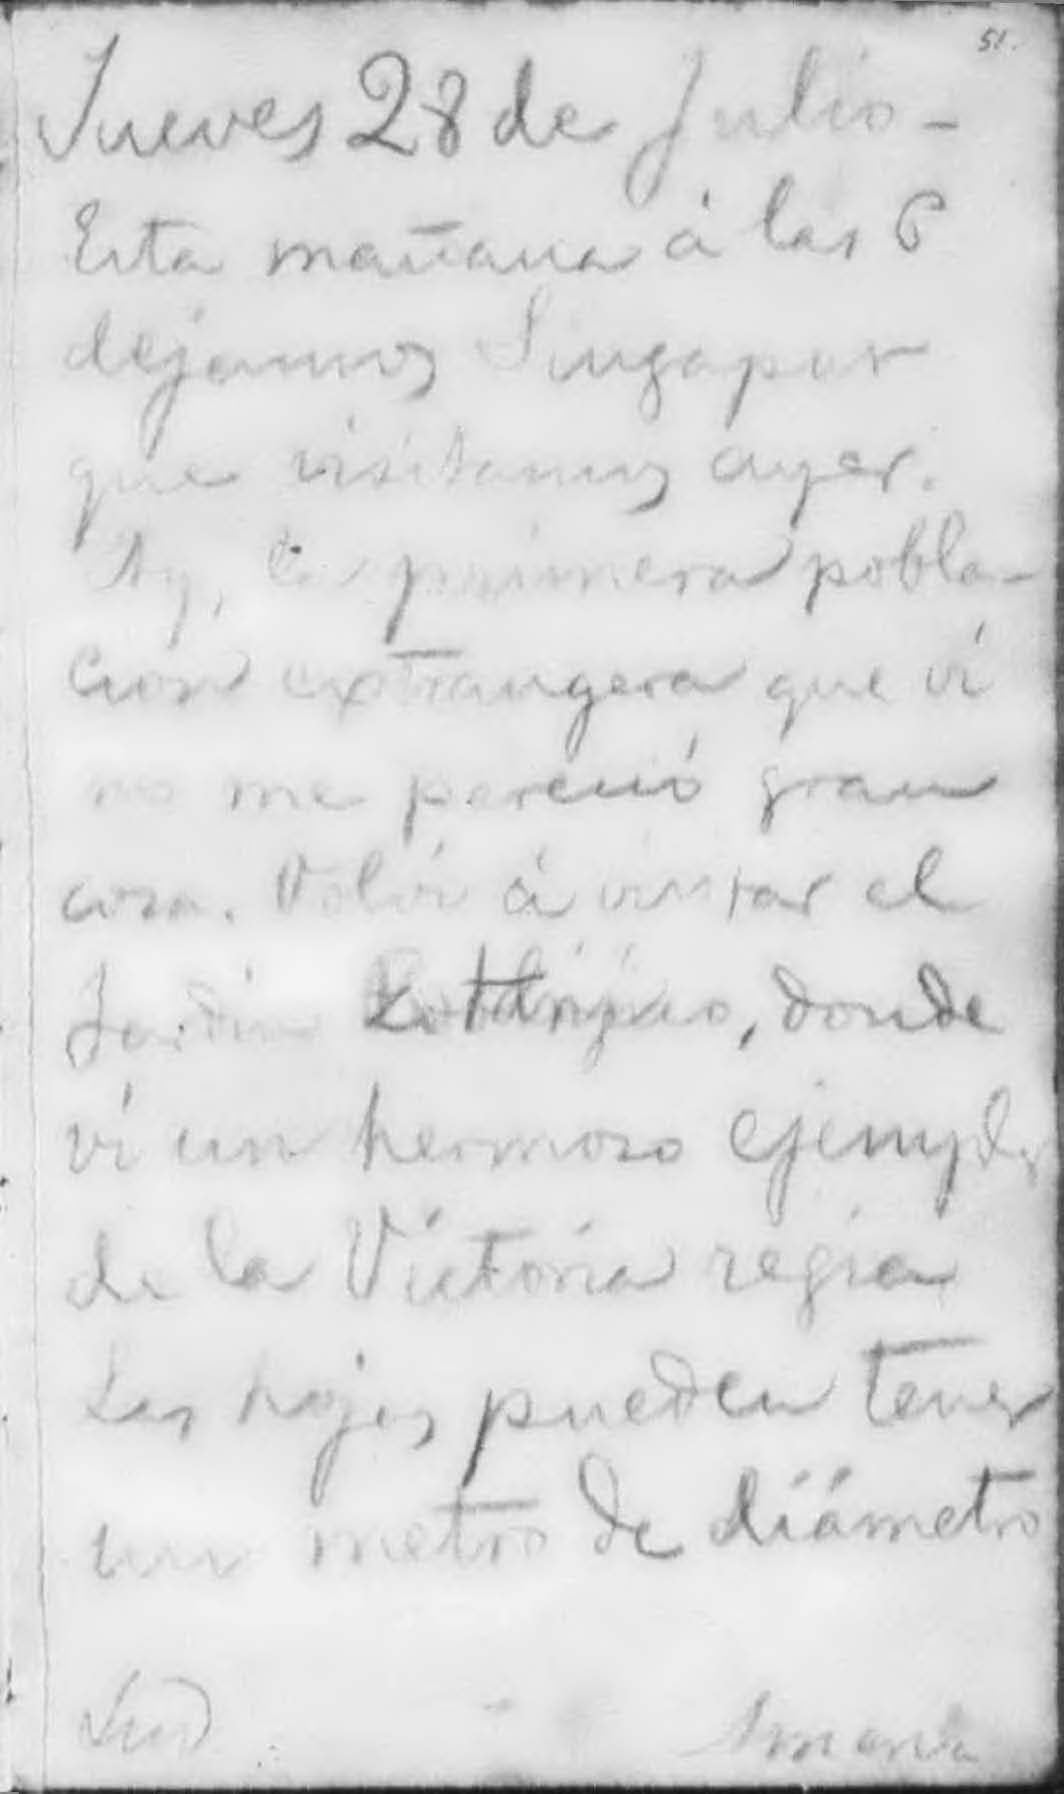 51.
Jueves 28 de Julio -
Esta mañana á las 6
dejamos Singapur
que visitamos ayer.
la primera pobla-
cion extrangera que ví
no me pareció gran
cosa. Volví á visitar el
Jardin Botánico, donde
ví un hermoso ejemplar
de la Victoria regia
Las hojas pueden tener
un metro de diámetro